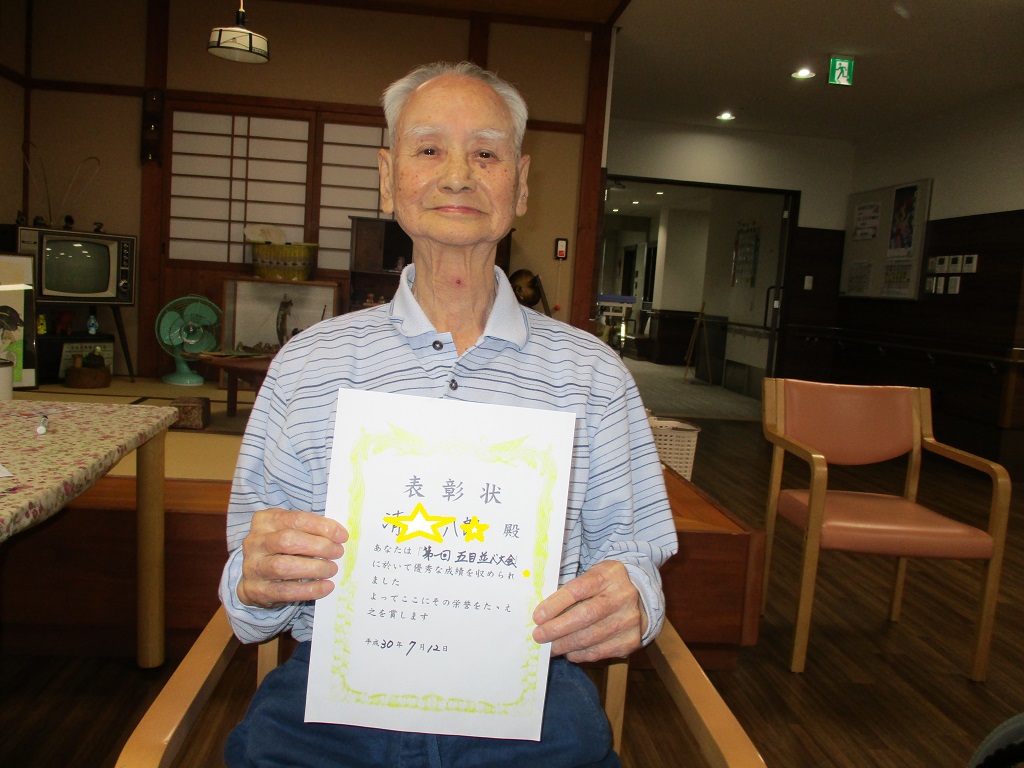 表彰状
清 八郎 殿
あなたは「第一回 五目並べ大会
に於いて優秀な成績を収められ
ました
よってここにその栄誉をたゝえ
之を賞します
平成30年7月12日